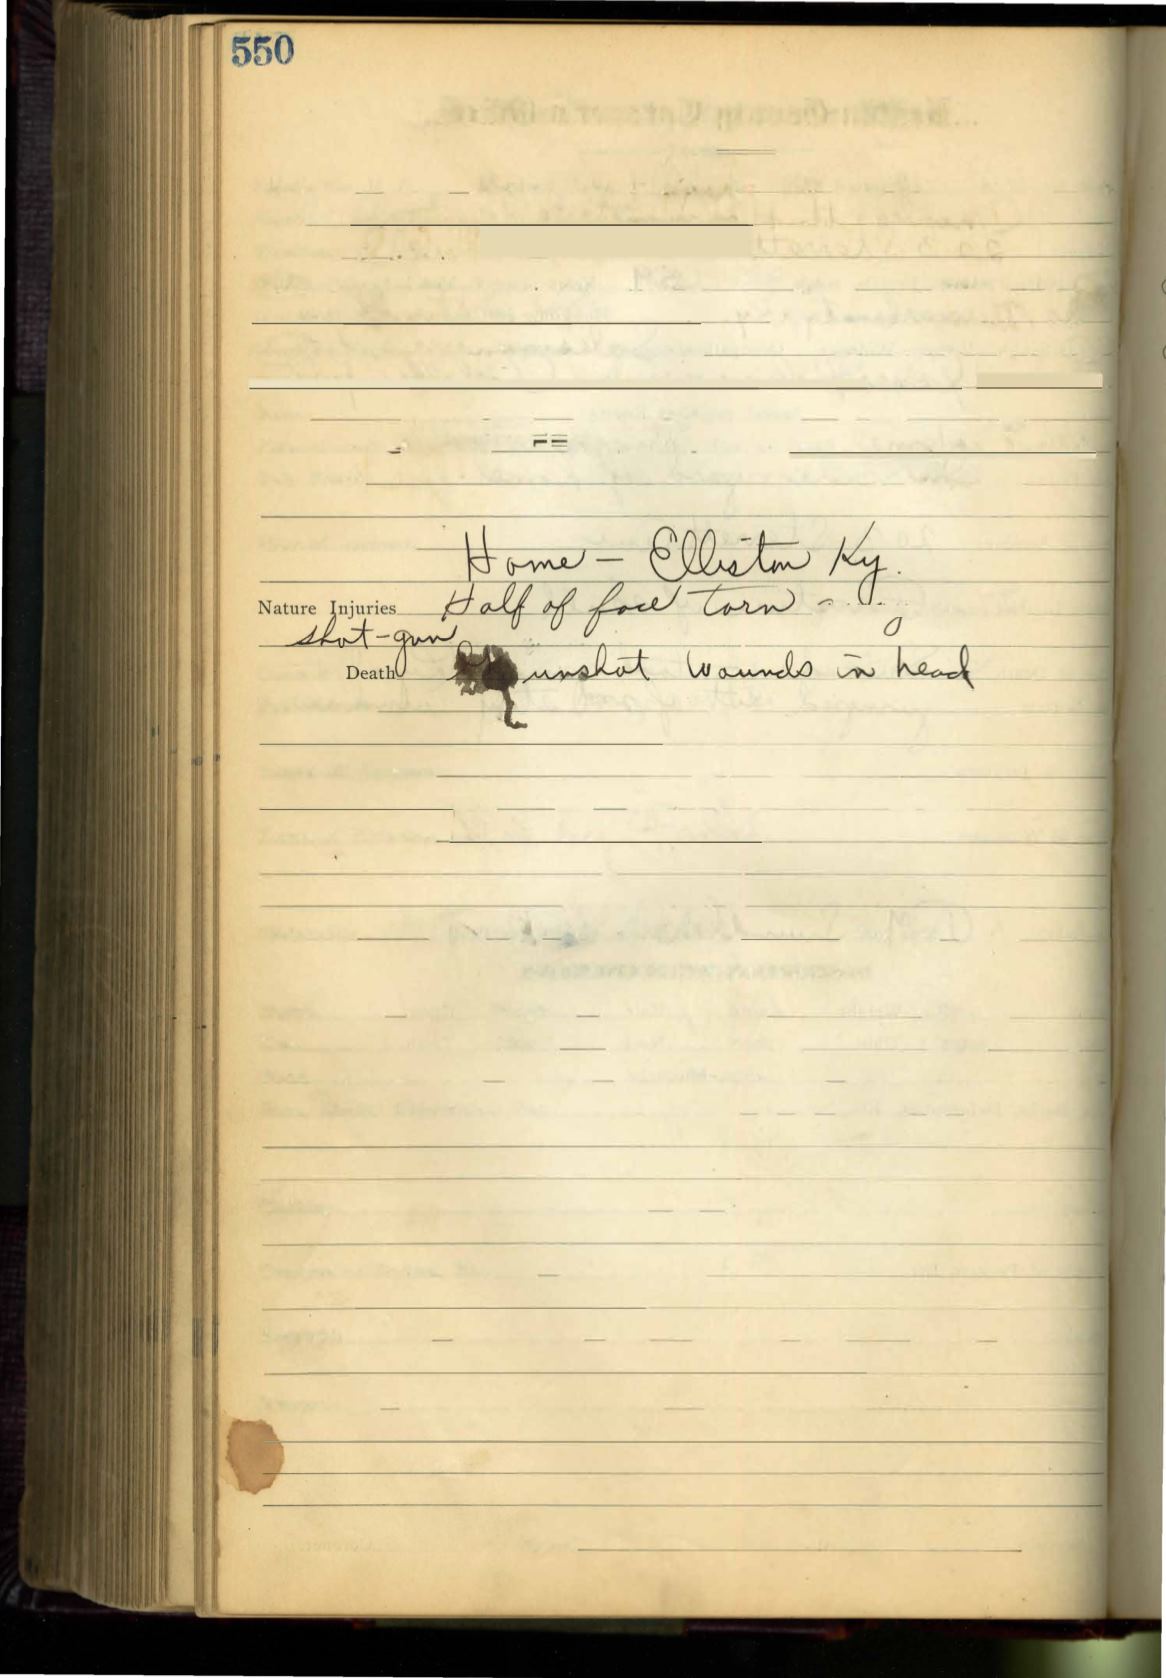 550
Home - Elliston Ky.
Nature Injuries Half of face torn -
shot-gun
Death Gunshot wounds in head